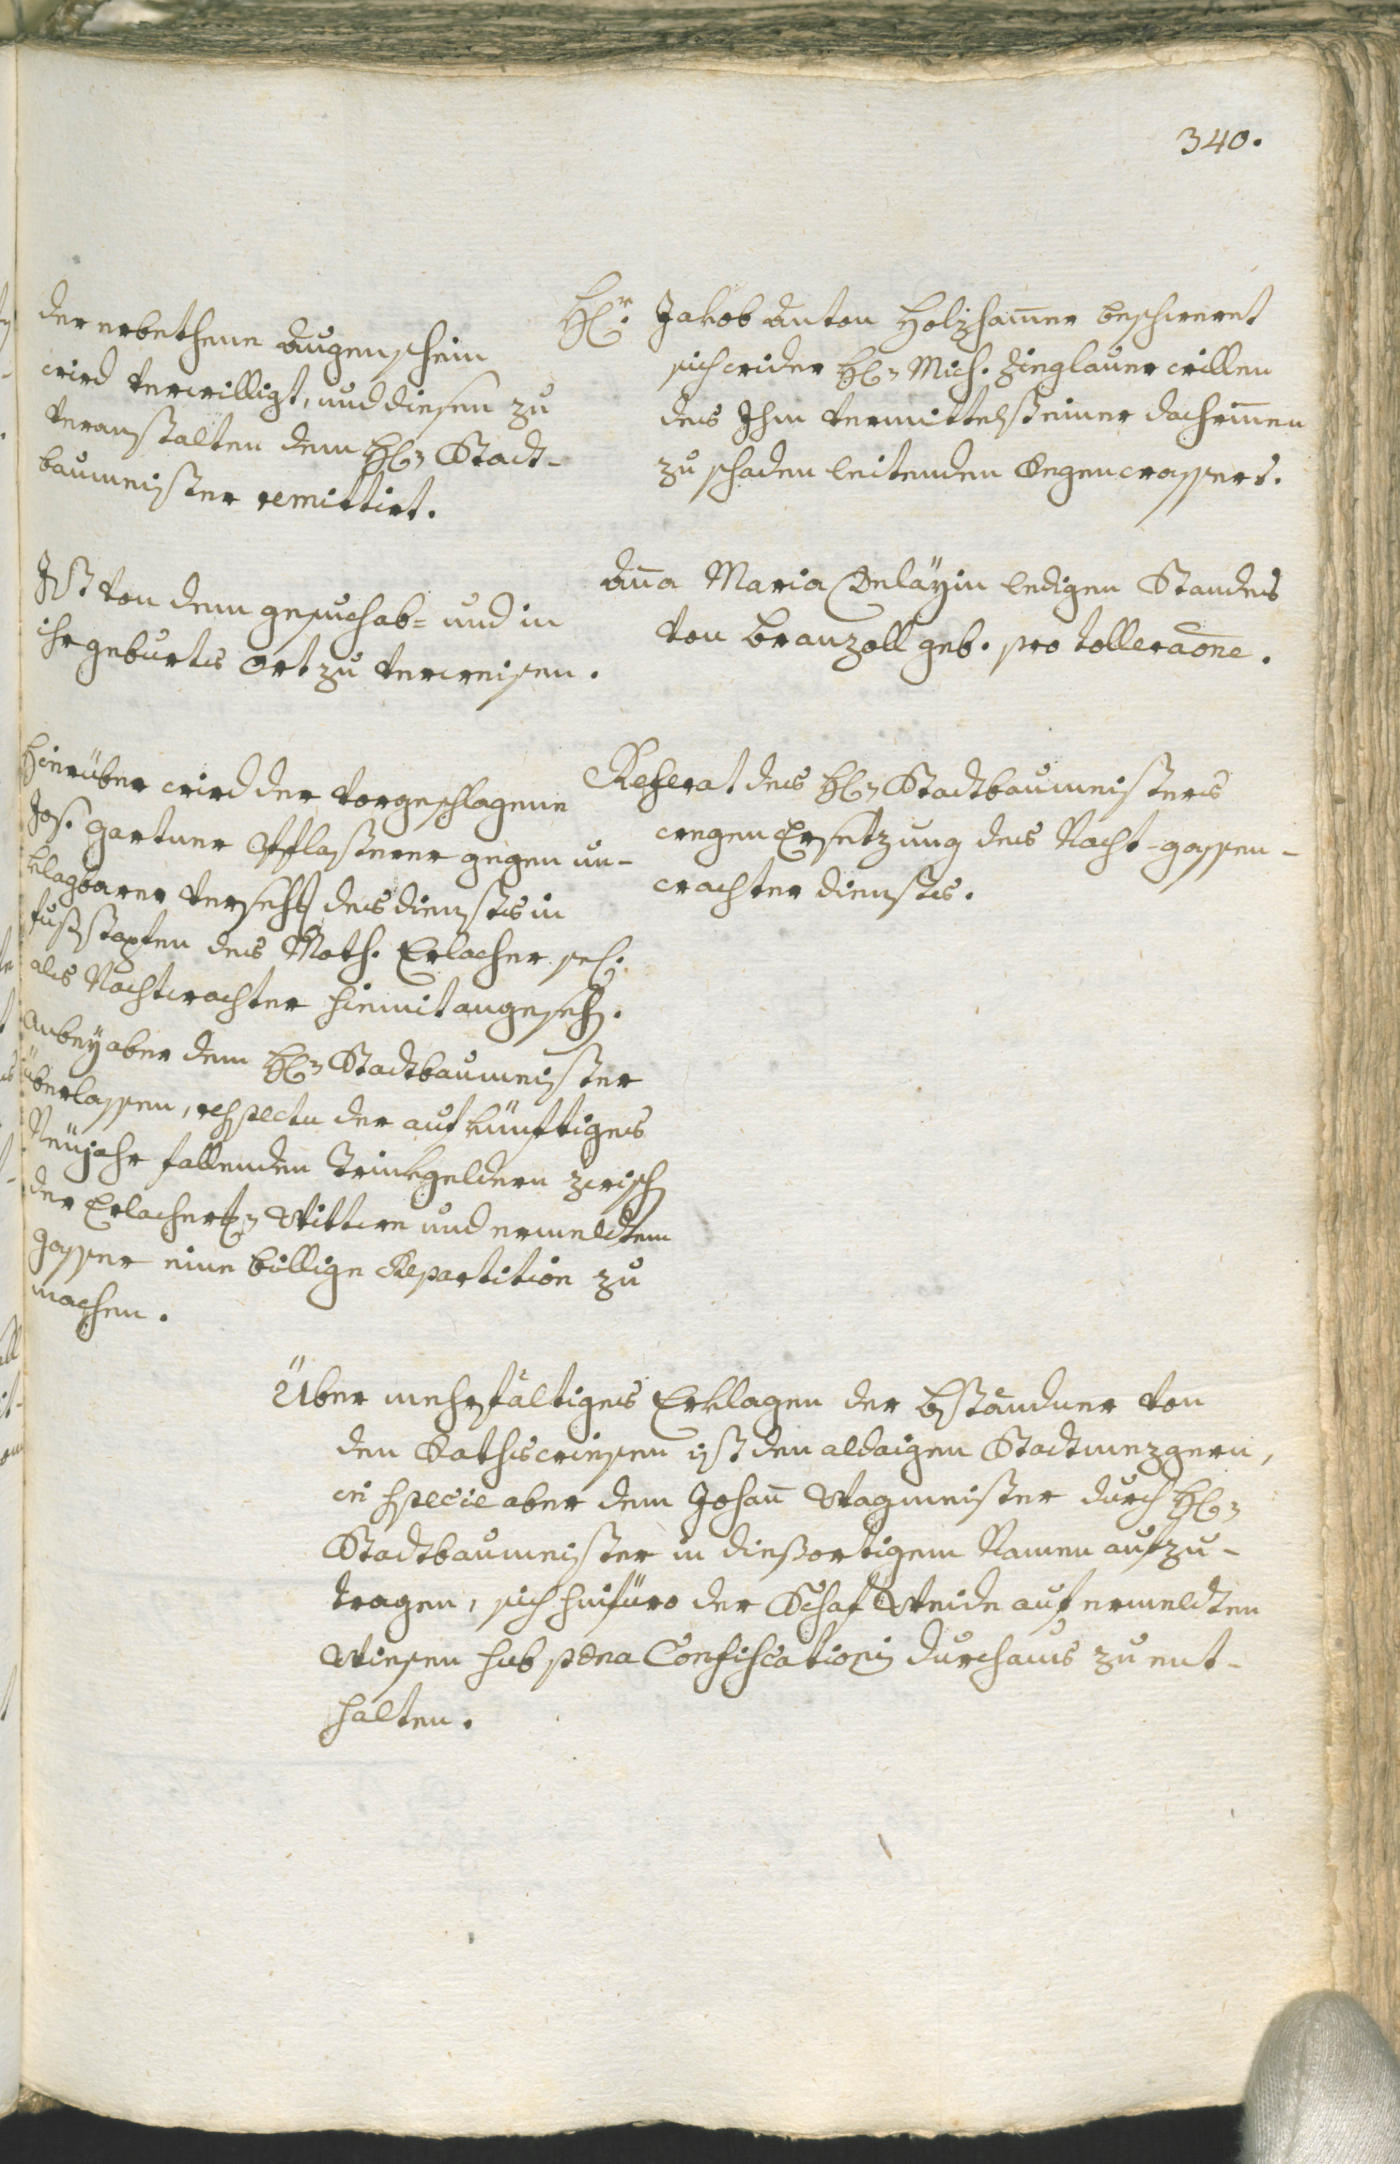 340.
Hr. Jakob Anton Holzhamer beschweret
sich wider H. Mich. Zinglauer willen
des Ihm vermittelst einer Dachrinnen
zu schaden leitenden Regenwassers.
der erbethene Augenschein
wird verwilligt, und diesen zu
veranstalten dem H. Stadt-
baumeister remittirt.
Anna Maria Delayin ledigen Standes
von Branzoll geb. pro tolleraone.
Ist von dem gesuch ab- und in
ihr geburts Ort zu verweisen.
Referat des H. Stadtbaumeisters
wegen Ersetzung des Nacht-gassen-
wachter diensts.
Hierüber wird der vorgeschlagene
Jos. Gartner Pflasterer gegen un-
klagbarer Versehg des diensts in
fußstapfen des Math. Erlacher sel.
als Nachtwachter hiemit angesehen.
Anbey aber dem H. Stadtbaumeister
überlassen, respectu der auf künftiges
Neujahr fallenden Trinkgeldern zwischen
der Erlacherschen Wittwe und ermeldtem
Gasser eine billige Repartition zu
machen.
Über mehrfältiges Erklagen der Bständner von
den Rathswiesen ist den aldaigen Stadtmezgern,
in specie aber dem Johann Wagmeister durch H.
Stadtbaumeister in diesortigem Namen aufzu-
tragen, sich hinfüro der Schaf Weide auf ermeldten
Wiesen sub poena Confiscationis durchaus zu ent-
halten.